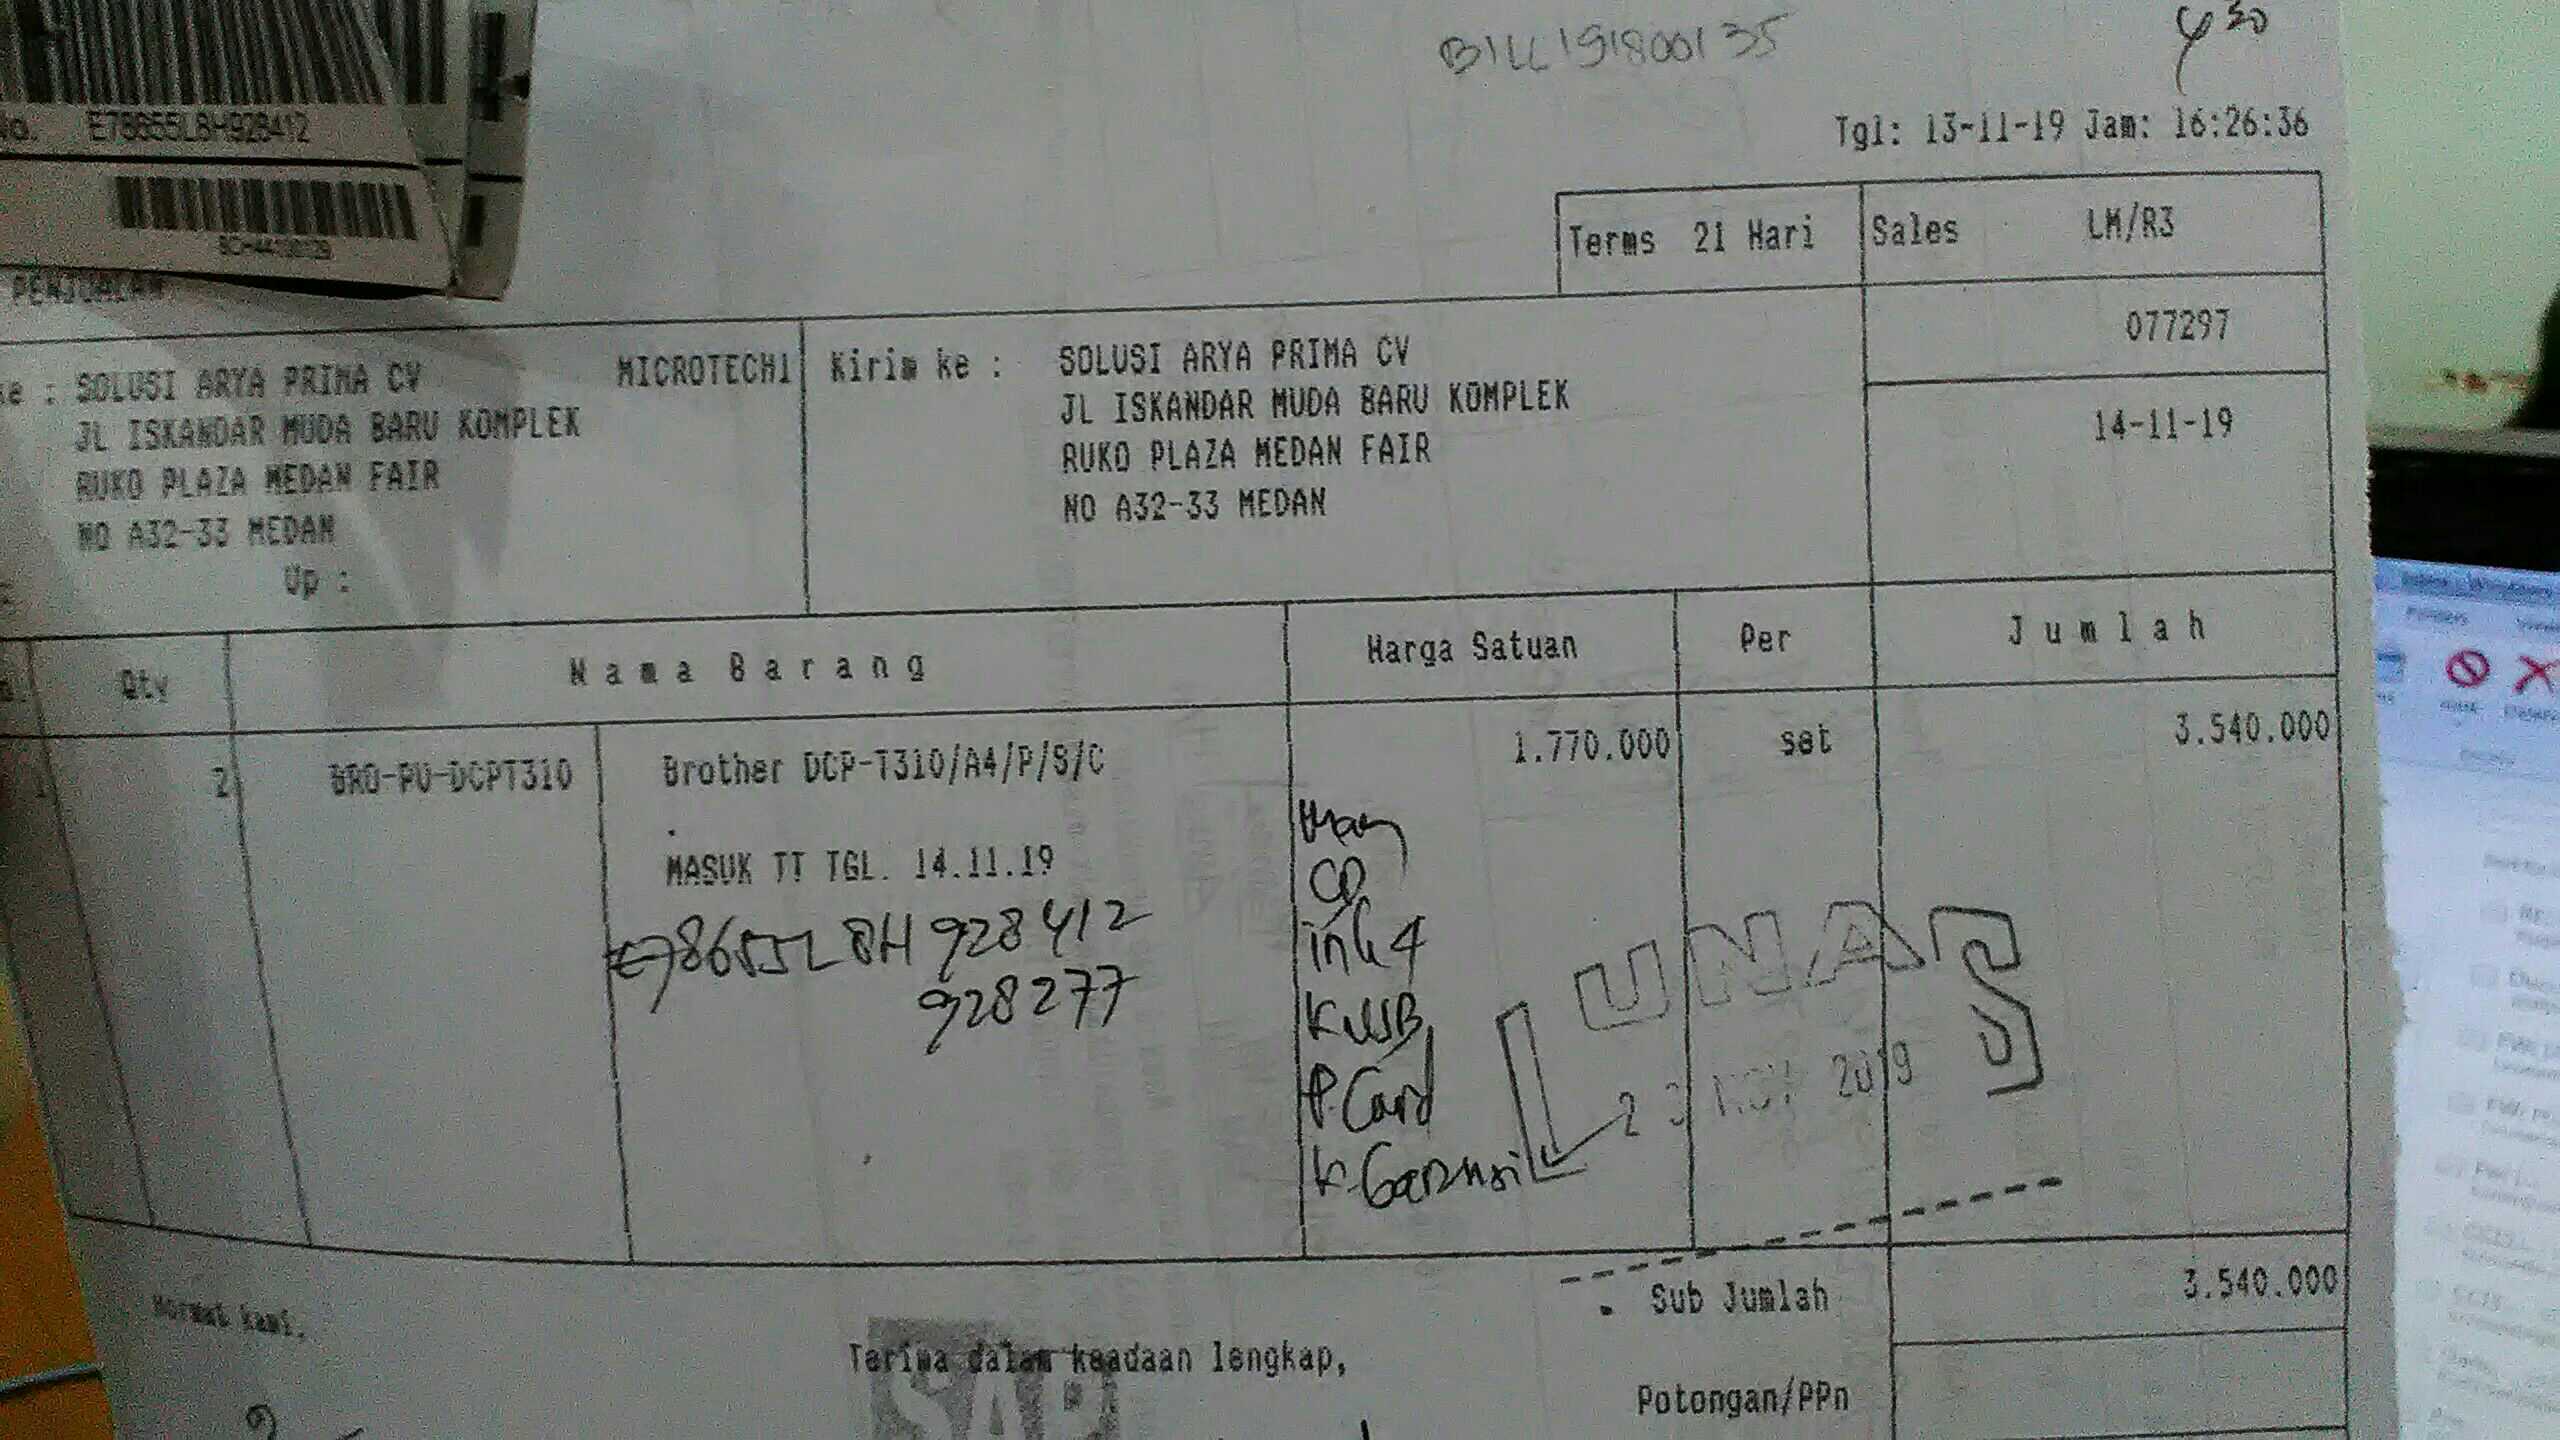 BILL191800135
430
No. E78655L8H928412
Tgl: 13-11-19 Jam: 16:26:36
Terms 21 Hari Sales LM/R3
PENJUALAN
077297
ke : SOLUSI ARYA PRIMA CV MICROTECH1 Kirim ke : SOLUSI ARYA PRIMA CV
JL ISKANDAR MUDA BARU KOMPLEK JL ISKANDAR MUDA BARU KOMPLEK 14-11-19
RUKO PLAZA MEDAN FAIR RUKO PLAZA MEDAN FAIR
NO A32-33 MEDAN NO A32-33 MEDAN
Up :
Qty Nama Barang Harga Satuan Per Jumlah
1 2 BRO-PU-DCPT310 Brother DCP-T310/A4/P/S/C 1.770.000 set 3.540.000
.
MASUK TT TGL. 14.11.19
E78655L8H928412
928277
CD
ink 4
K USB
P. Card
K. Garansi
LUNAS
23 NOV 2019
Sub Jumlah 3.540.000
Hormat kami,
Terima dalam keadaan lengkap,
Potongan/PPn